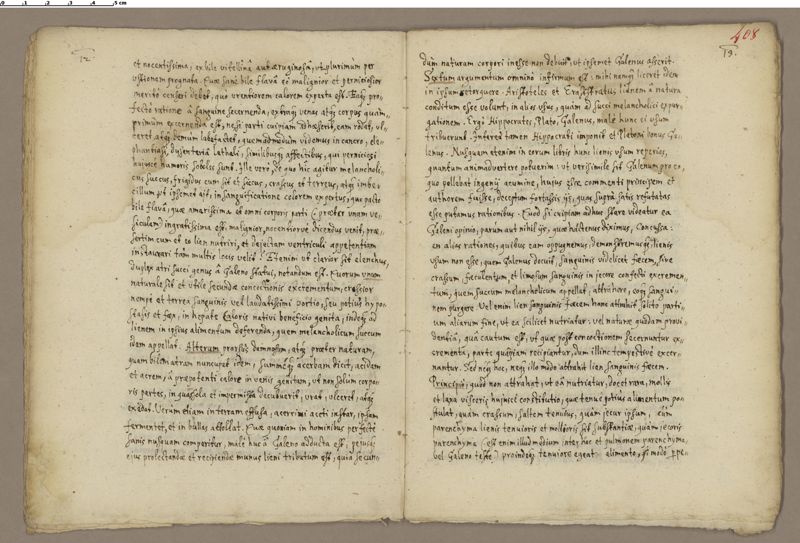 0 1 2 3 4 5 cm
12
et nocentissima, ex bile vitellina aut æruginosa, ut plurimum per
ustionem prognata. Quæ sanè bile flava eò malignior et perniciosior
meritò censeri debet, quo urentiorem calorem experta est. Eaq; pro-
fectò ratione à sanguine secernenda, extraq; venas atq; corpus quam-
primùm excernenda est, ne si parti cuipiam adhæserit, eam rodat, ul-
ceret atq; demum labefactet, quemadmodum videmus in cancro, ele-
phantiasi, dysenteria lethali, similibusq; affectibus, qui perniciosi
hujusce humoris soboles sunt. Ille verò, de quo hic agitur melancholi-
cus succus, frigidus cum sit et siccus, crassus et terreus, atq; imbe-
cillum
bile flava, quæ amarissima et omni corporis parti (præter unam ve-
siculam) ingratissima est, malignior, nocentiorve dicendus venit, præ-
sertim cum et eo lien nutriri, et dejectam ventriculi appetentiam
instaurari tam multis locis velit? Etenim ut clarior sit elenchus,
duplex atri succi genus à Galeno statui, notandum est. Quorum unum
naturale sit et utile secundæ concoctionis excrementum, crassior
nempe et terrea sanguinis vel laudatissimi portio, seu potius hypo-
stasis et fæx, in hepate caloris nativi beneficio genita, indeq; ad
lienem in ipsius alimentum deferenda, quem melancholicum succum
idem appellat. Alterum prorsus damnosum, atq; præter naturam,
quam bilem atram nuncupat idem, summéq; acerbam dicit, acidam
et acrem, à præpotenti calore in venis genitam, ut non solum corpo-
ris partes, in quas sola et impermixta decubuerit, urat, ulceret, atq;
exedat. Verum etiam in terram effusa, acerrimi aceti instar, ipsam
fermentet, et in bullas attollat. Quæ quoniam in hominibus perfectè
sanis nusquam comperitur, malè huc à Galeno adducta est, pejusq;
ejus prolectandæ et recipiendæ munus lieni tributum est, quia secun-
408
13.
dùm naturam corpori inesse non debuit, ut ipsemet Galenus asserit.
Sextum argumentum omninò infirmum est: mihi namq; liceret idem
in ipsum retorquere. Aristoteles et Erasistratus lienem à natura
conditum esse volunt, in alios usus, quàm ad succi melancholici expur-
gationem. Ergò Hippocrates, Plato, Galenus, malè hunc ei usum
tribuerunt. Interea tamen Hippocrati imponit et Platoni bonus Ga-
lenus. Nusquam etenim in eorum libris hunc lienis usum reperies,
quantum animadvertere potuerim: ut verisimile sit Galenum pro eo,
quo pollebat ingenij acumine, hujus esse commenti principem et
authorem fuisse, deceptum fortassis ijs, quas suprà satis refutatas
esse putamus rationibus. Quod si cuipiam adhuc stare videatur ea
Galeni opinio, parum aut nihil ijs, quæ hactenus diximus, concussa:
en alias rationes, quibus eam oppugnemus, demonstremusq; lienis
usum non esse, quem Galenus docuit, sanguinis videlicet fæcem, sive
crassum, fæculentum et limosum sanguinis in jecore confecti excremen-
tum, quem succum melancholicum appellat, attrahere, eoq; sangui-
nem purgare. Vel enim lien sanguinis fæcem hanc attrahit solito parti-
um aliarum fine, ut ea scilicet nutriatur: vel naturæ quadam provi-
dentia, qua cautum est, ut quæ post concoctionem secernuntur ex-
crementa, parte quapiam recipiantur, dum illinc tempestivè excer-
nantur. Sed neq; hoc, neq; illo modo attrahit lien sanguinis fæcem.
Principiò, quod non attrahat, ut ea nutriatur, docet rara, mollis
et laxa visceris hujusce constitutio, quæ tenue potius alimentum pos-
tulat, quàm crassum, saltem tenuius, quàm jecur ipsum, cùm
parenchyma lienis tenuioris et mollioris sit substantiæ, quàm jecoris
parenchyma (est enim illud medium inter hoc et pulmonem parenchyma,
vel Galeno teste) proindeq; tenuiore egeat alimento, si modò perpe-